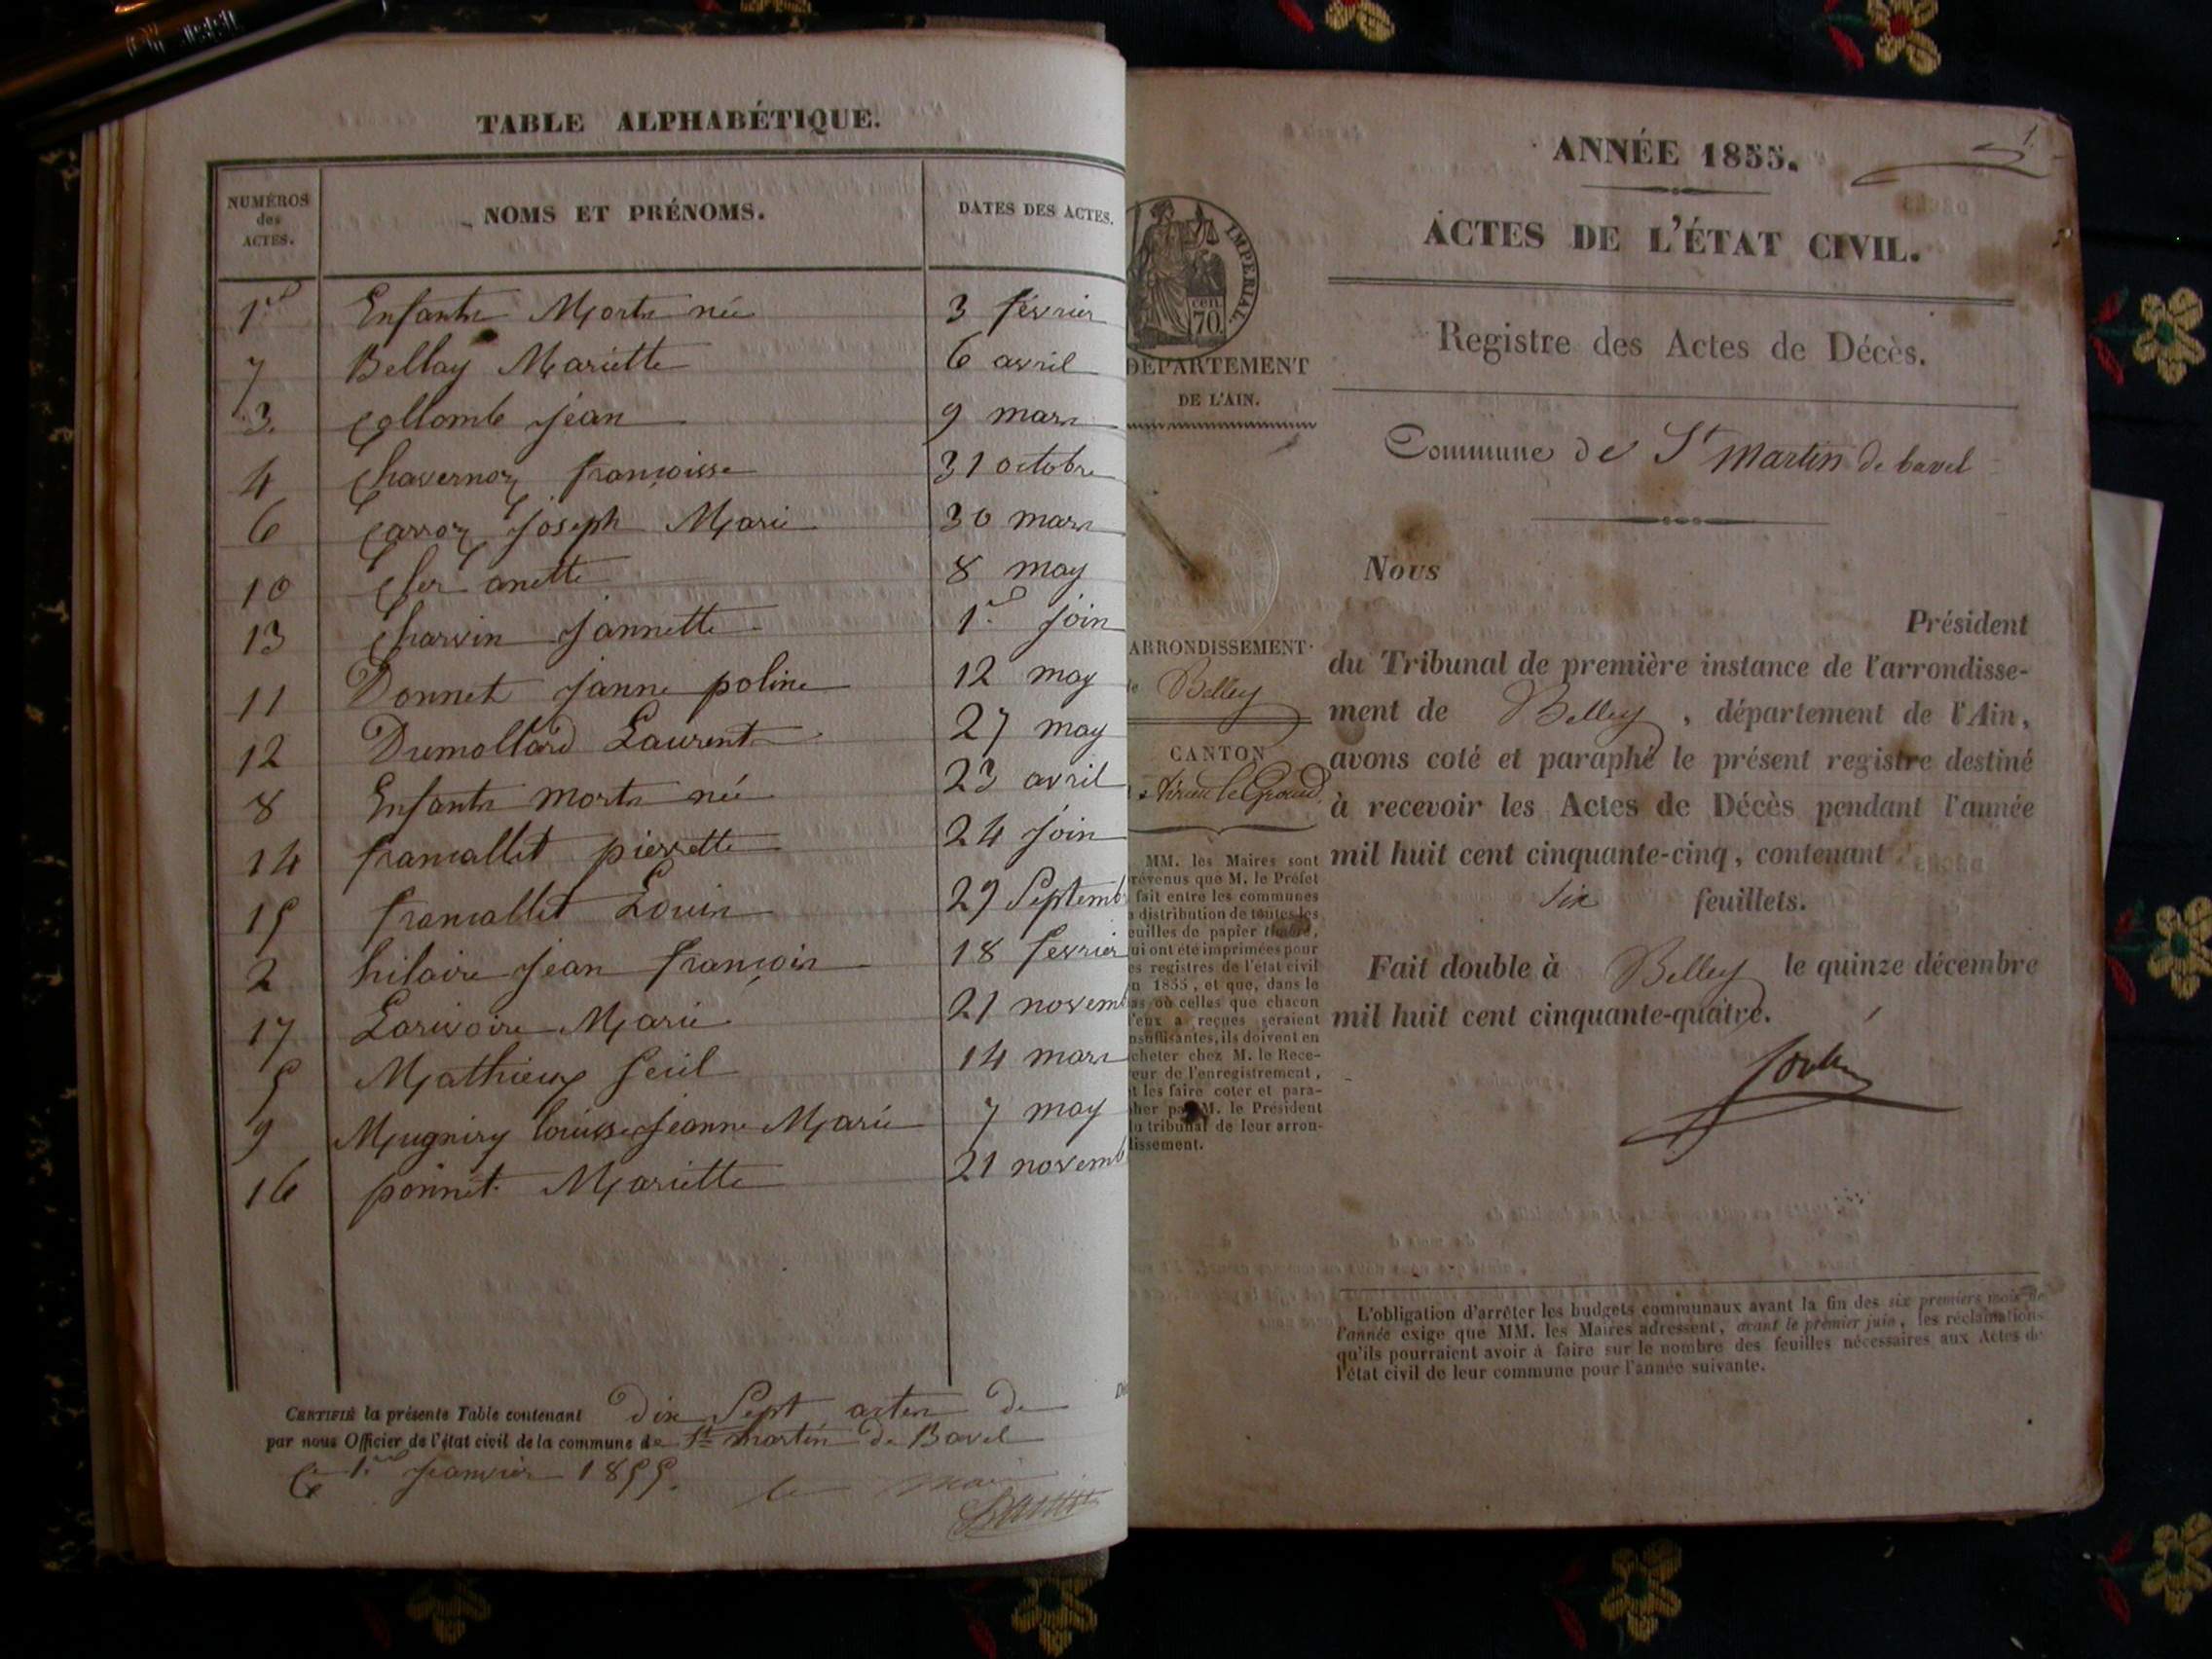 TABLE ALPHABÉTIQUE.
NUMÉROS
des
ACTES.
NOMS ET PRÉNOMS.
DATES DES ACTES.
1er Enfants Morts né 3 février
7 Bellay Mariette 6 avril
3 Collomb jean 9 mars
4 Chavernoz françoisse 31 octobre
6 Carroz joseph Marie 30 mars
10 anette 8 may
13 Charvin jannette 1er join
11 Donnet janne poline 12 may
12 Dumollard Laurent 27 may
8 Enfants morts né 23 avril
14 francallet pierrette 24 join
15 francallet Louis 29 Septemb
2 hilaire jean françois 18 fevrier
17 Larivoire Marie 21 novemb
5 Mathieux 14 mars
9 Mugniry louisse jeanne Marie 7 may
16 ponnet Mariette 21 novemb
CERTIFIÉ la présente Table contenant dix Sept actes de
par nous Officier de l'état civil de la commune de St martin de Bavel
le 1er janvier 1855. le maire
1
ANNÉE 1855.
ACTES DE L'ÉTAT CIVIL.
IMPERIAL
cen.
70.
DÉPARTEMENT
DE L'AIN.
Registre des Actes de Décès.
Commune de St martin de bavel
Nous
Président
ARRONDISSEMENT
de Belley
CANTON
Virieu le Grand
du Tribunal de première instance de l'arrondisse-
ment de Belley, département de l'Ain,
avons coté et paraphé le présent registre destiné
à recevoir les Actes de Décès pendant l'année
mil huit cent cinquante-cinq, contenant
six feuillets.
Fait double à Belley le quinze décembre
mil huit cent cinquante-quatre.
MM. les Maires sont
révenus que M. le Préfet
fait entre les communes
a distribution de toutes les
euilles de papier timbré,
ui ont été imprimées pour
es registres de l'état civil
n 1855, et que, dans le
as où celles que chacun
d'eux a reçues seraient
nsuffisantes, ils doivent en
cheter chez M. le Rece-
eur de l'enregistrement,
t les faire coter et para-
pher par M. le Président
u tribunal de leur arron-
dissement.
L'obligation d'arrêter les budgets communaux avant la fin des six premiers mois de
l'année exige que MM. les Maires adressent, avant le premier juin, les réclamations
qu'ils pourraient avoir à faire sur le nombre des feuilles nécessaires aux Actes de
l'état civil de leur commune pour l'année suivante.